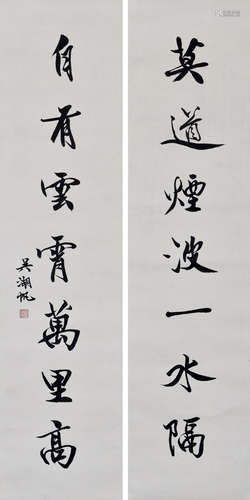 莫道煙波一水隔
自有雲霄萬里高
吴湖帆